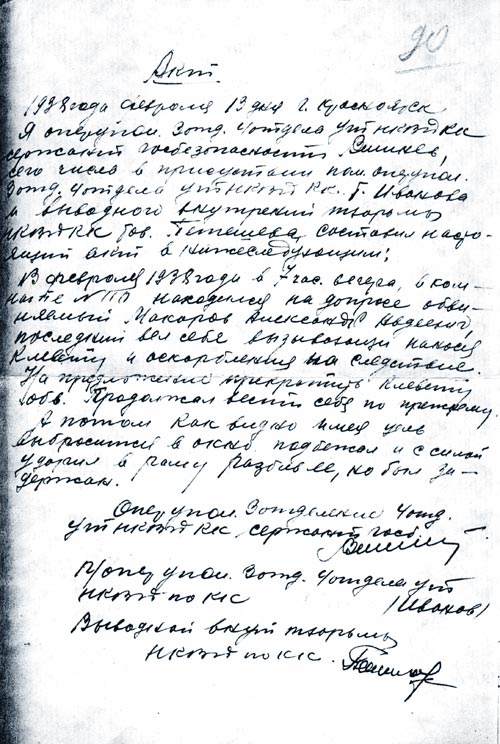 90
Акт.
1938 года февраля 13 дня г. Красноярск
Я оперупол. 3 отд. 4 отдела УГБ НКВД КК
сержант госбезопасности
сего числа в присутствии пом. оперупол.
3 отд. 4 отдела УГБ НКВД КК. т. Иванова
и выводного внутренней тюрьмы
НКВД КК тов. составил насто-
ящий акт в нижеследующим:
13 февраля 1938 года в 7 час. вечера, в ком-
нате № находился на допросе обви-
няемый Макаров Александр Авдеевич,
последний вел себя вызывающи нанося
клевету и оскорбления на следствие.
На предложение прекратить клевету
обв. Продолжал вести себя по прежнему.
А потом как видно имея цель
выбросится в окно подбежал и с силой
ударил в раму разбив ее, но был за-
держан.
Оперупол. 3 отделения 4 отд.
УГБ НКВД КК сержант госб.
П/оперупол. 3 отд. 4 отдела УГБ
НКВД по КК (Иванов)
Выводной внут тюрьмы
НКВД по КК.